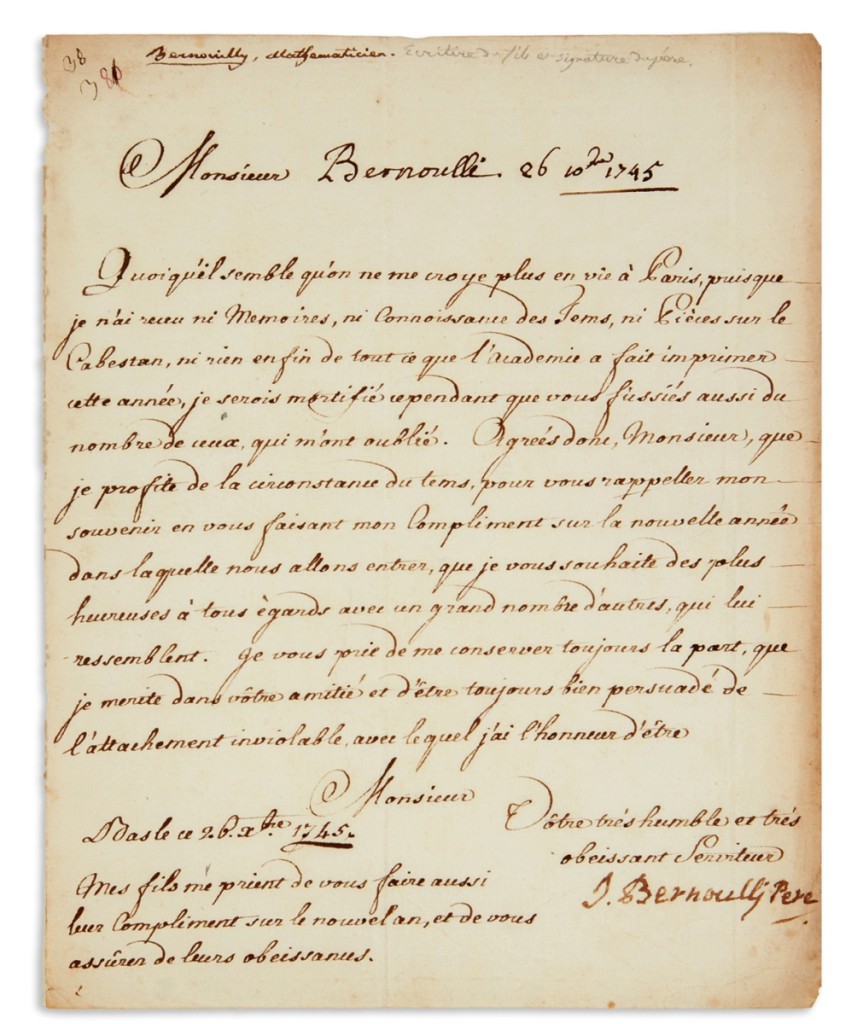 38
386
Bernouilly, Mathematicien. Ecritüre du fils et signature du père.
Monsieur Bernoulli. 26 10bre 1745
Quoiqu'il semble qu'on ne me croye plus en vie à Paris, puisque
je n'ai receu ni Memoires, ni Connoissance des Tems, ni Pièces sur le
Cabestan, ni rien enfin de tout ce que l'Academie a fait imprimer
cette année, je serois mortifié cependant que vous fussiés aussi du
nombre de ceux, qui m'ont oublié. Agreés donc, Monsieur, que
je profite de la circonstance du tems, pour vous rappeller mon
souvenir en vous faisant mon Compliment sur la nouvelle année
dans laquelle nous allons entrer, que je vous souhaite des plus
heureuses à tous ègards avec un grand nombre d'autres, qui lui
ressemblent. Je vous prie de me conserver toujours la part, que
je merite dans vôtre amitié et d'être toujours bien persuadé de
l'attachement inviolable, avec lequel j'ai l'honneur d'être
Monsieur
à Basle ce 26. Xbre 1745.
Vôtre trés humble et trés
obeissant Serviteur
J. Bernoullj Pere
Mes fils me prient de vous faire aussi
leur Compliment sur le nouvel an, et de vous
assûrer de leurs obeissances.